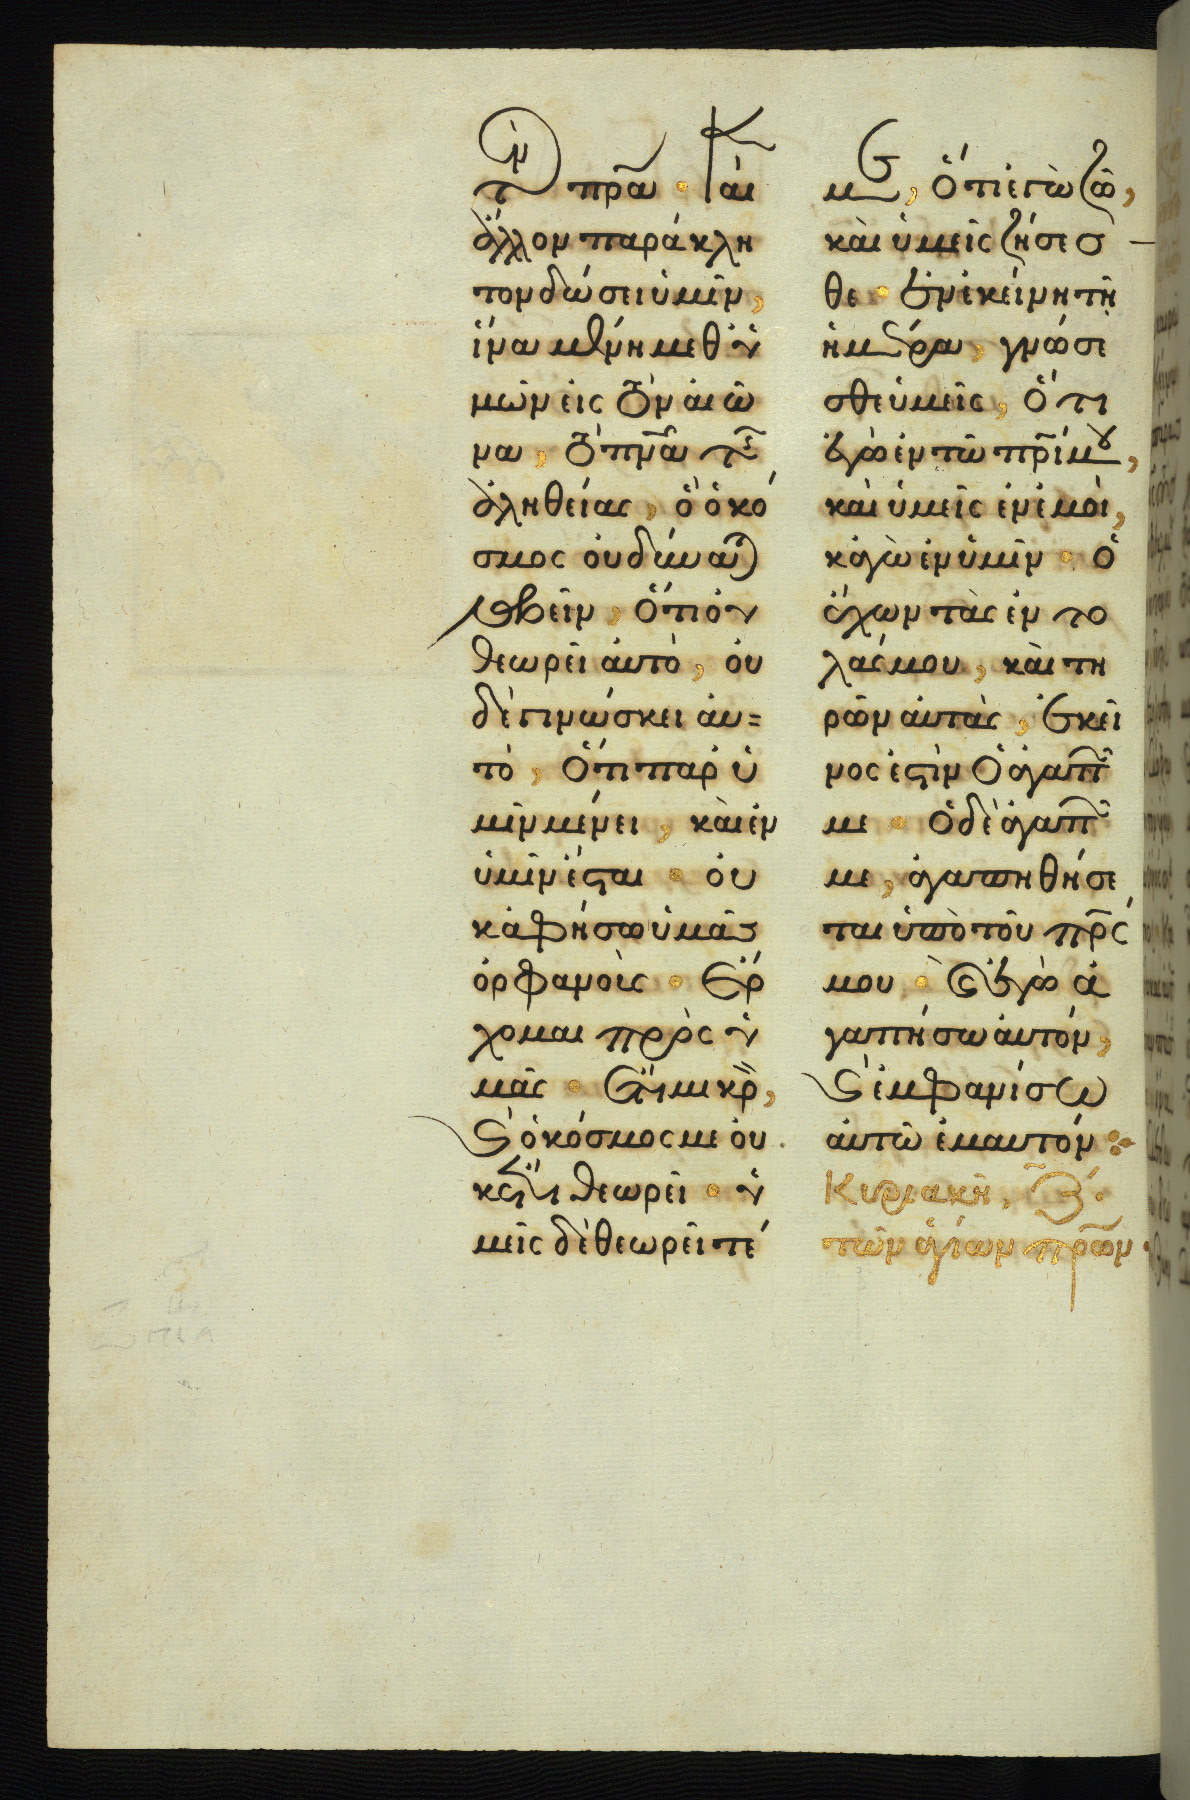 τὸν πρα· Καὶ
ἄλλον παράκλη
τον δώσει ὑμῖν,
ἵνα μένη μεθ ὑ
μῶν εἰς τὸν αἰῶ
να, τὸ πνα τῆς
ἀληθείας, ὃ ὁ κό
σμος οὐ δύναται
λαβεῖν, ὅτι οὐ
θεωρεῖ αυτὸ, οὐ
δὲ γινώσκει ἀυ=
τό, Ὅτι παρ ὑ
μῖν μένει, καὶ ἐν
ὑμῖν ἔσται· οὐ
κ ἀφήσω ὑμᾶς
ὀρφανοὺς· Ἔρ
χομαι πρὸς ὑ
μᾶς· Ἔτι μικρ,
καὶ ὁ κόσμος με οὐ
κέτι θεωρεῖ· ὑ
μεῖς δὲ θεωρεῖτέ
με, ὅτι ἐγὼ ζῶ,
καὶ ὑμεῖς ζήσεσ
θε· Ἐν ἐκείνη τῆ
ἡμέρα, γνώσε
σθε ὑμεῖς, Ὅτι
ἐγὼ ἐν τῶ πρί μου,
καὶ ὑμεῖς ἐν ἐμοὶ,
κἀγὼ ἐν ὑμῖν· Ὁ
ἔχων τὰς ἐντο
λάς μου, καὶ τη
ρῶν ἀυτὰς, Ἐκεῖ
νος ἐστὶν Ὁ ἀγαπῶν
με· Ὁ δὲ ἀγαπῶν
με, ἀγαπηθήσε
ται ὑπὸ τοῦ πρς
μου· καὶ Ἐγὼ ἀ
γαπήσω ἀυτόν,
καὶ ἐμφανίσω
ἀυτῶ ἐμαυτόν
Κυριακῆ, ζ·
τῶν ἁγίων πρων